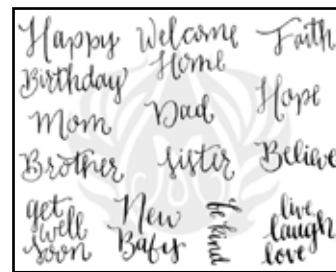 Happy
Birthday
Welcome
Home
Faith
Mom
Dad
Hope
Brother
sister
Believe
get
well
soon
New
Baby
be kind
live
laugh
love